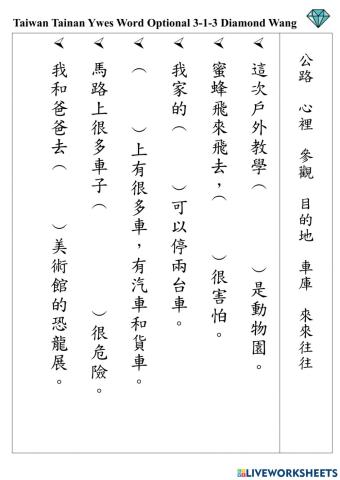 Taiwan Tainan Ywes Word Optional 3-1-3 Diamond Wang
公路 心裡 參觀 目的地 車庫 來來往往
➢ 這次戶外教學（ ）是動物園。
➢ 蜜蜂飛來飛去，（ ）很害怕。
➢ 我家的（ ）可以停兩台車。
➢ （ ）上有很多車，有汽車和貨車。
➢ 馬路上很多車子（ ）很危險。
➢ 我和爸爸去（ ）美術館的恐龍展。
LIVEWORKSHEETS